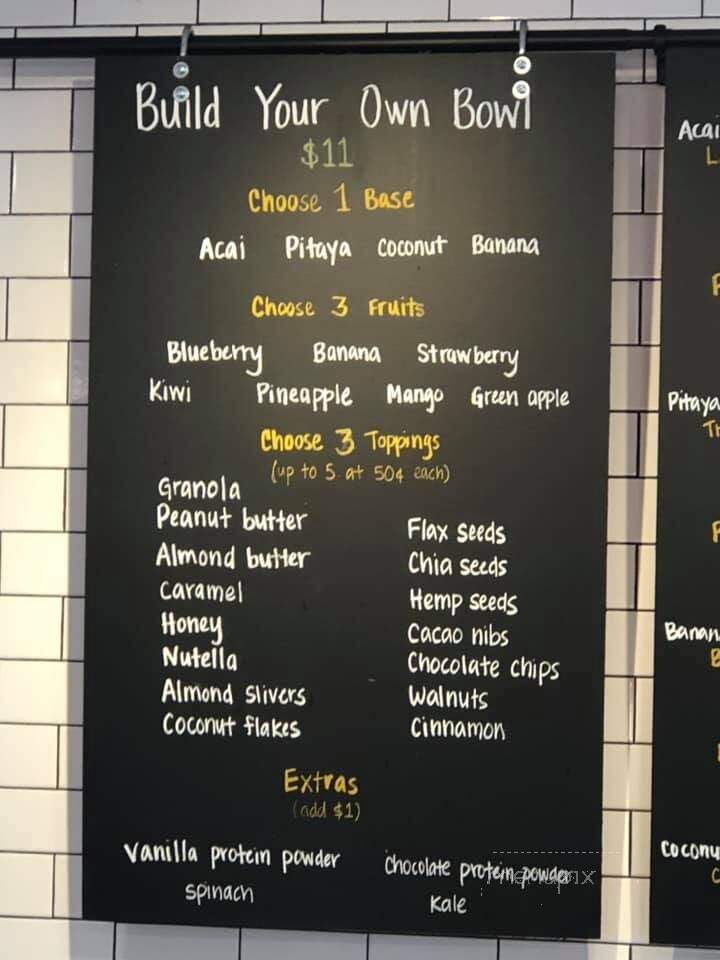 Build Your Own Bowl
$11
Choose 1 Base
Acai Pitaya Coconut Banana
Choose 3 Fruits
Blueberry Banana Strawberry
Kiwi Pineapple Mango Green apple
Choose 3 Toppings
(up to 5 at 50¢ each)
Granola
Peanut butter
Almond butter
Caramel
Honey
Nutella
Almond slivers
Coconut flakes
Flax seeds
Chia seeds
Hemp seeds
Cacao nibs
Chocolate chips
Walnuts
Cinnamon
Extras
(add $1)
Vanilla protein powder
Chocolate protein powder
Spinach
Kale
Acai
Pitaya